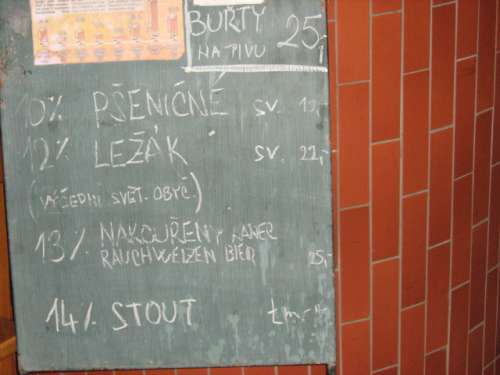 BUŘTY
NA PIVU 25,-
10% PŠENIČNÉ sv. 19,-
12% LEŽÁK sv. 22,-
(VÝČEDNÍ SVĚT. OBYČ.)
13% NAKOUŘENÝ KANEC
RAUCHWEIZEN BIER 25,-
14% STOUT